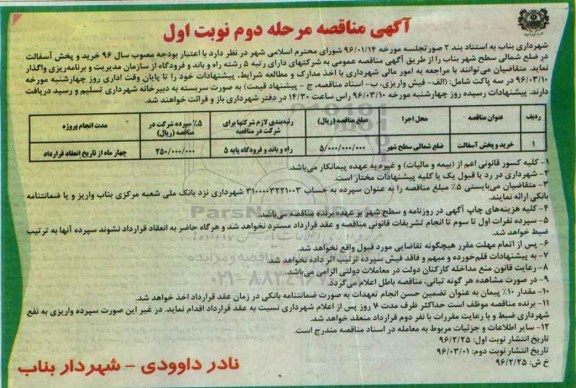 آگهی مناقصه مرحله دوم نوبت اول
شهرداری بناب به استناد بند ۲ صورتجلسه مورخه ۹۶/۰۱/۱۴ شورای محترم اسلامی شهر در نظر دارد با اعتبار بودجه مصوب سال ۹۶ خرید و پخش آسفالت
در ضلع شمالی سطح شهر بناب را از طریق آگهی مناقصه عمومی به شرکتهای دارای رتبه ۵ رشته راه و باند و فرودگاه از سازمان مدیریت و برنامه‌ریزی واگذار
نماید. متقاضیان می‌توانند با مراجعه به امور مالی شهرداری با اخذ مدارک و مطالعه شرایط، پیشنهادات خود را تا پایان وقت اداری روز چهارشنبه مورخه
۹۶/۰۳/۱۰ در سه پاکت شامل: (الف- فیش واریزی، ب- اسناد مناقصه، ج - پیشنهاد قیمت) به صورت سربسته به دبیرخانه شهرداری تسلیم و رسید دریافت
دارند. پیشنهادات رسیده روز چهارشنبه مورخه ۹۶/۰۳/۱۰ راس ساعت ۱۴/۳۰ در دفتر شهرداری باز و قرائت خواهند شد.
ردیف عنوان مناقصه محل اجرا مبلغ مناقصه (ریال) رتبه‌بندی لازم شرکتها برای شرکت در مناقصه ۵٪ سپرده شرکت در مناقصه (ریال) مدت انجام پروژه
۱ خرید و پخش آسفالت ضلع شمالی سطح شهر ۵/۰۰۰/۰۰۰/۰۰۰ راه و باند و فرودگاه پایه ۵ ۲۵۰/۰۰۰/۰۰۰ چهار ماه از تاریخ انعقاد قرارداد
۱- کلیه کسور قانونی اعم از (بیمه و مالیات) و غیره به عهده پیمانکار می‌باشد.
۲- شهرداری در رد یا قبول یک یا کلیه پیشنهادات مختار است.
۳- متقاضیان می‌بایستی ۵٪ مبلغ مناقصه را به عنوان سپرده به حساب ۳۱۰۰۰۰۳۲۲۱۰۰۳ شهرداری نزد بانک ملی شعبه مرکزی بناب واریز و یا ضمانتنامه
بانکی ارائه نمایند.
۴- کلیه هزینه‌های چاپ آگهی در روزنامه و سطح شهر بر عهده برنده مناقصه می‌باشد.
۵- سپرده نفرات اول تا سوم تا انجام تشریفات قانونی مناقصه و عقد قرارداد مسترد نخواهد شد و هرگاه حاضر به انعقاد قرارداد نشوند سپرده آنها به ترتیب
ضبط خواهد شد.
۶- پس از اتمام مهلت مقرر هیچگونه تقاضایی مورد قبول واقع نخواهد شد.
۷- به پیشنهادات قلم‌خورده و مبهم و فاقد فیش سپرده ترتیب اثر داده نخواهد شد.
۸- رعایت قانون منع مداخله کارکنان دولت در معاملات دولتی الزامی می‌باشد.
۹- در صورت مشاهده هر گونه تبانی، مناقصه باطل اعلام می‌گردد.
۱۰- مقدار ۱۰٪ پیمان به عنوان تضمین حسن انجام تعهدات به صورت ضمانتنامه بانکی در زمان عقد قرارداد اخذ خواهد شد.
۱۱- برنده مناقصه موظف است حداکثر ظرف مدت ۷ روز پس از اعلام شهرداری نسبت به عقد قرارداد اقدام نماید. در غیر این صورت سپرده واریزی به نفع
شهرداری ضبط و با رعایت مقررات با نفر دوم قرارداد منعقد خواهد شد.
۱۲- سایر اطلاعات و جزئیات مربوط به معامله در اسناد مناقصه مندرج است.
تاریخ انتشار نوبت اول: ۹۶/۲/۲۵
تاریخ انتشار نوبت دوم: ۹۶/۰۳/۰۱
خ ش: ۹۶/۲/۲۵
نادر داوودی - شهردار بناب